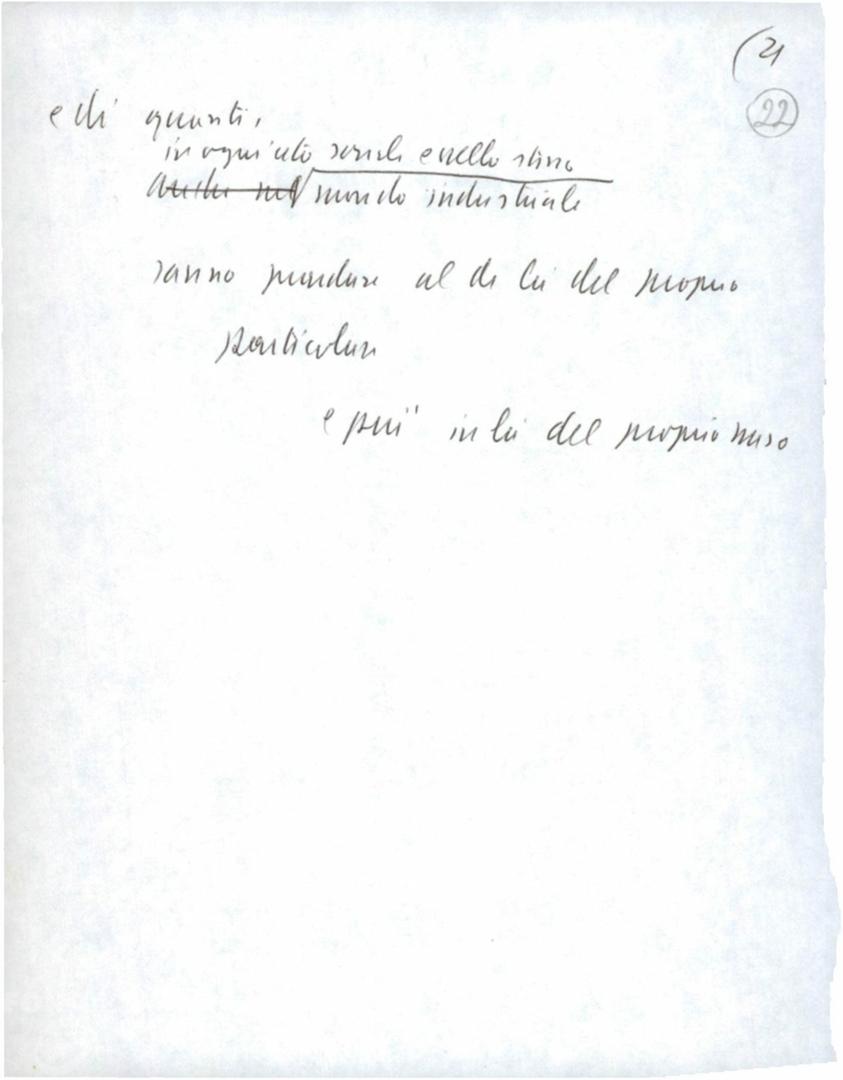 (21
22
e di quanti,
in ogni ceto sociale e nello stesso
anche nel mondo industriale
sanno guardare al di là del proprio
particolare
e più in là del proprio naso